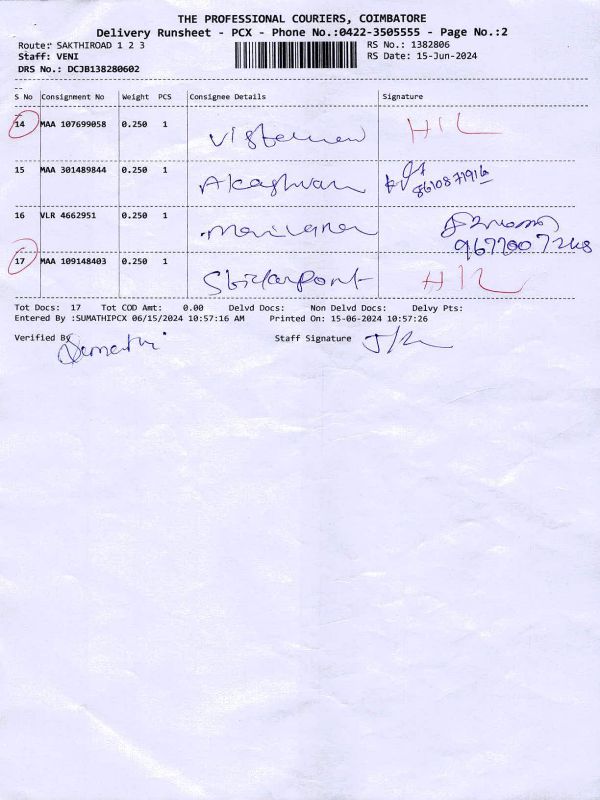 THE PROFESSIONAL COURIERS, COIMBATORE
Delivery Runsheet - PCX - Phone No.:0422-3505555 - Page No.:2
Route: SAKTHIROAD 1 2 3 RS No.: 1382806
Staff: VENI RS Date: 15-Jun-2024
DRS No.: DCJB138280602
S No Consignment No Weight PCS Consignee Details Signature
14 MAA 107699058 0.250 1 HIL
15 MAA 301489844 0.250 1 8610871916
16 VLR 4662951 0.250 1
17 MAA 109148403 0.250 1 HIL
Tot Docs: 17 Tot COD Amt: 0.00 Delvd Docs: Non Delvd Docs: Delvy Pts:
Entered By :SUMATHIPCX 06/15/2024 10:57:16 AM Printed On: 15-06-2024 10:57:26
Verified By Sumathi Staff Signature